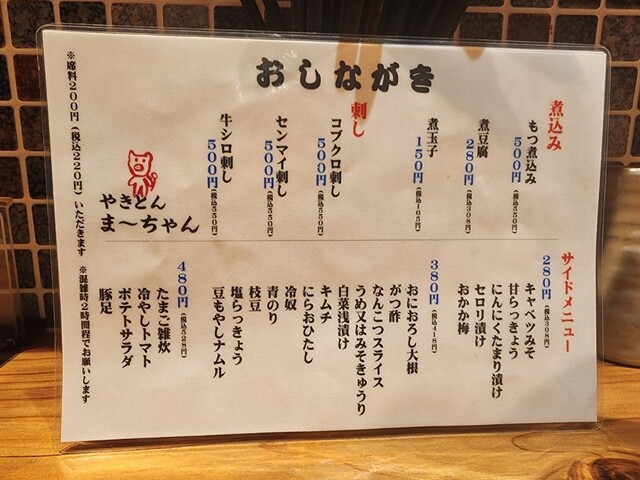 おしながき
煮込み
もつ煮込み
500円(税込550円)
煮豆腐
280円(税込308円)
煮玉子
150円(税込165円)
刺し
コブクロ刺し
500円(税込550円)
センマイ刺し
500円(税込550円)
牛シロ刺し
500円(税込550円)
やきとん
ま～ちゃん
※席料200円(税込220円)いただきます ※混雑時2時間程でお願いします
サイドメニュー
280円(税込308円)
キャベツみそ
甘らっきょう
にんにくたまり漬け
セロリ漬け
おかか梅
380円(税込418円)
おにおろし大根
がつ酢
なんこつスライス
うめ又はみそきゅうり
白菜浅漬け
キムチ
にらおひたし
冷奴
青のり
枝豆
塩らっきょう
豆もやしナムル
480円(税込528円)
たまご雑炊
冷やしトマト
ポテトサラダ
豚足